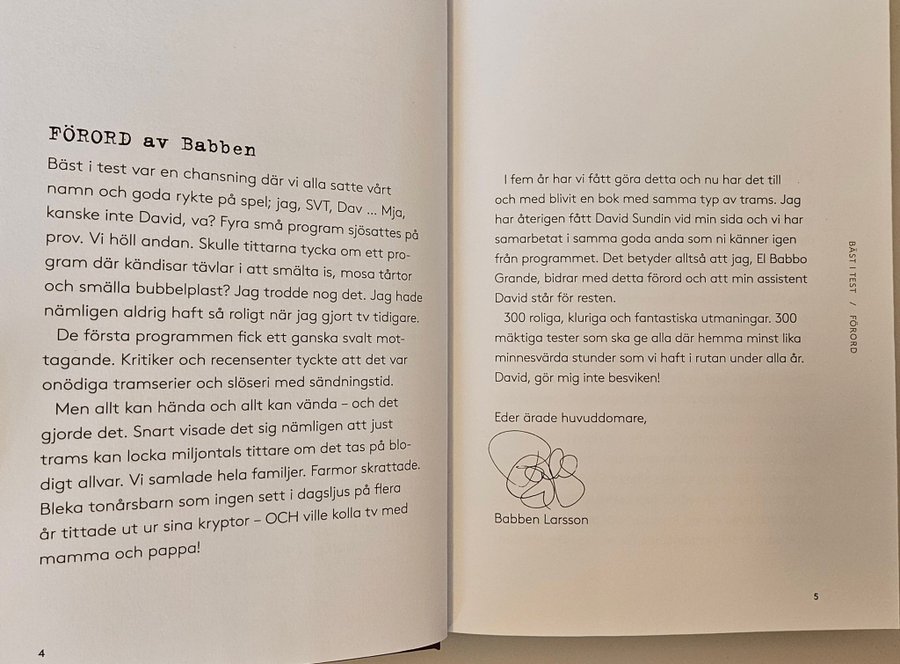 FÖRORD av Babben
Bäst i test var en chansning där vi alla satte vårt
namn och goda rykte på spel; jag, SVT, Dav ... Mja,
kanske inte David, va? Fyra små program sjösattes på
prov. Vi höll andan. Skulle tittarna tycka om ett pro-
gram där kändisar tävlar i att smälta is, mosa tårtor
och smälla bubbelplast? Jag trodde nog det. Jag hade
nämligen aldrig haft så roligt när jag gjort tv tidigare.
De första programmen fick ett ganska svalt mot-
tagande. Kritiker och recensenter tyckte att det var
onödiga tramserier och slöseri med sändningstid.
Men allt kan hända och allt kan vända – och det
gjorde det. Snart visade det sig nämligen att just
trams kan locka miljontals tittare om det tas på blo-
digt allvar. Vi samlade hela familjer. Farmor skrattade.
Bleka tonårsbarn som ingen sett i dagsljus på flera
år tittade ut ur sina kryptor – OCH ville kolla tv med
mamma och pappa!
4
I fem år har vi fått göra detta och nu har det till
och med blivit en bok med samma typ av trams. Jag
har återigen fått David Sundin vid min sida och vi har
samarbetat i samma goda anda som ni känner igen
från programmet. Det betyder alltså att jag, El Babbo
Grande, bidrar med detta förord och att min assistent
David står för resten.
300 roliga, kluriga och fantastiska utmaningar. 300
mäktiga tester som ska ge alla där hemma minst lika
minnesvärda stunder som vi haft i rutan under alla år.
David, gör mig inte besviken!
Eder ärade huvuddomare,
Babben Larsson
BÄST I TEST / FÖRORD
5